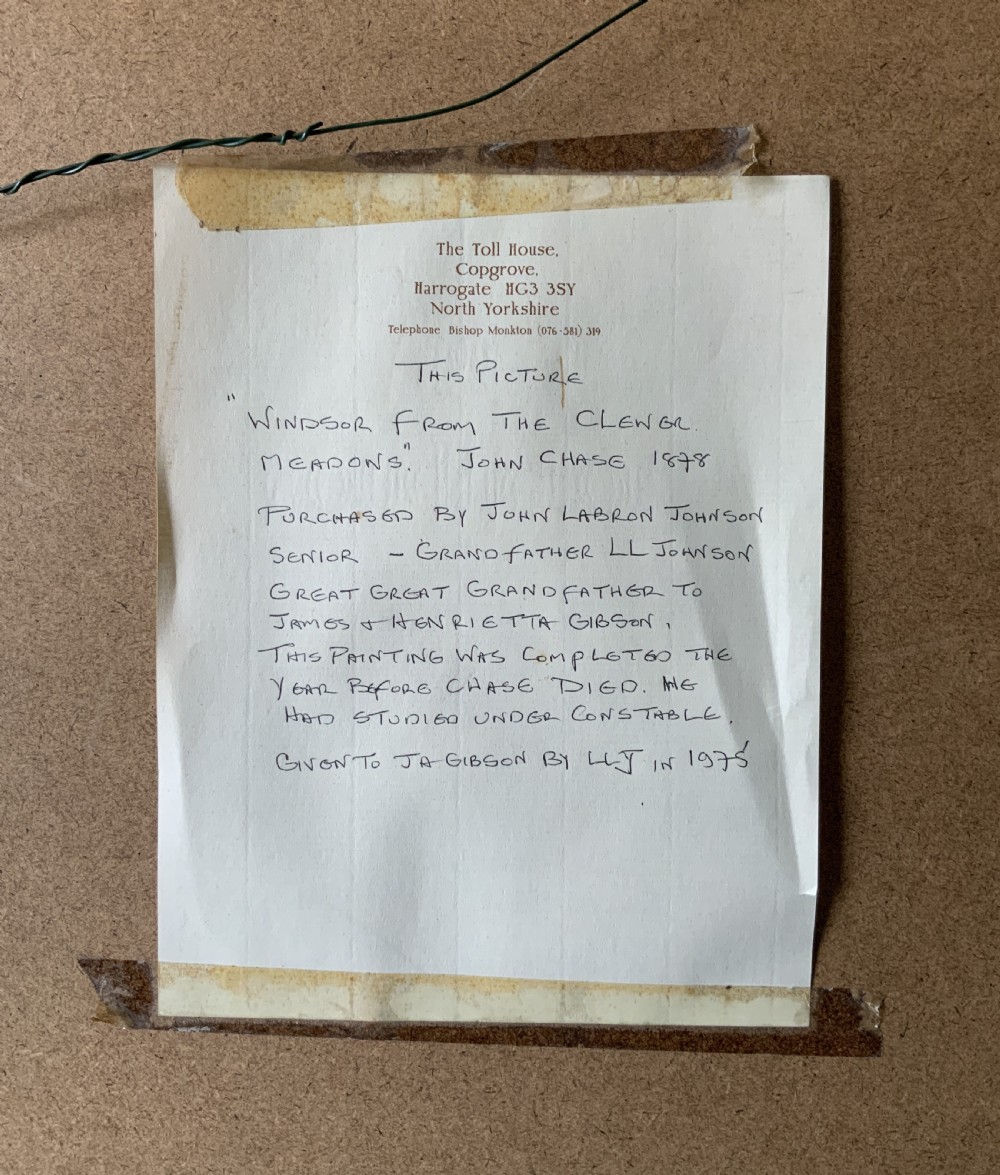 The Toll House,
Copgrove,
Harrogate HG3 3SY
North Yorkshire
Telephone Bishop Monkton (076-581) 319
THIS PICTURE
"WINDSOR FROM THE CLEWER
MEADOWS". JOHN CHASE 1878
PURCHASED BY JOHN LABRON JOHNSON
SENIOR - GRANDFATHER LL JOHNSON
GREAT GREAT GRANDFATHER TO
JAMES & HENRIETTA GIBSON.
THIS PAINTING WAS COMPLETED THE
YEAR BEFORE CHASE DIED. HE
HAD STUDIED UNDER CONSTABLE.
GIVEN TO JA GIBSON BY LLJ IN 1975